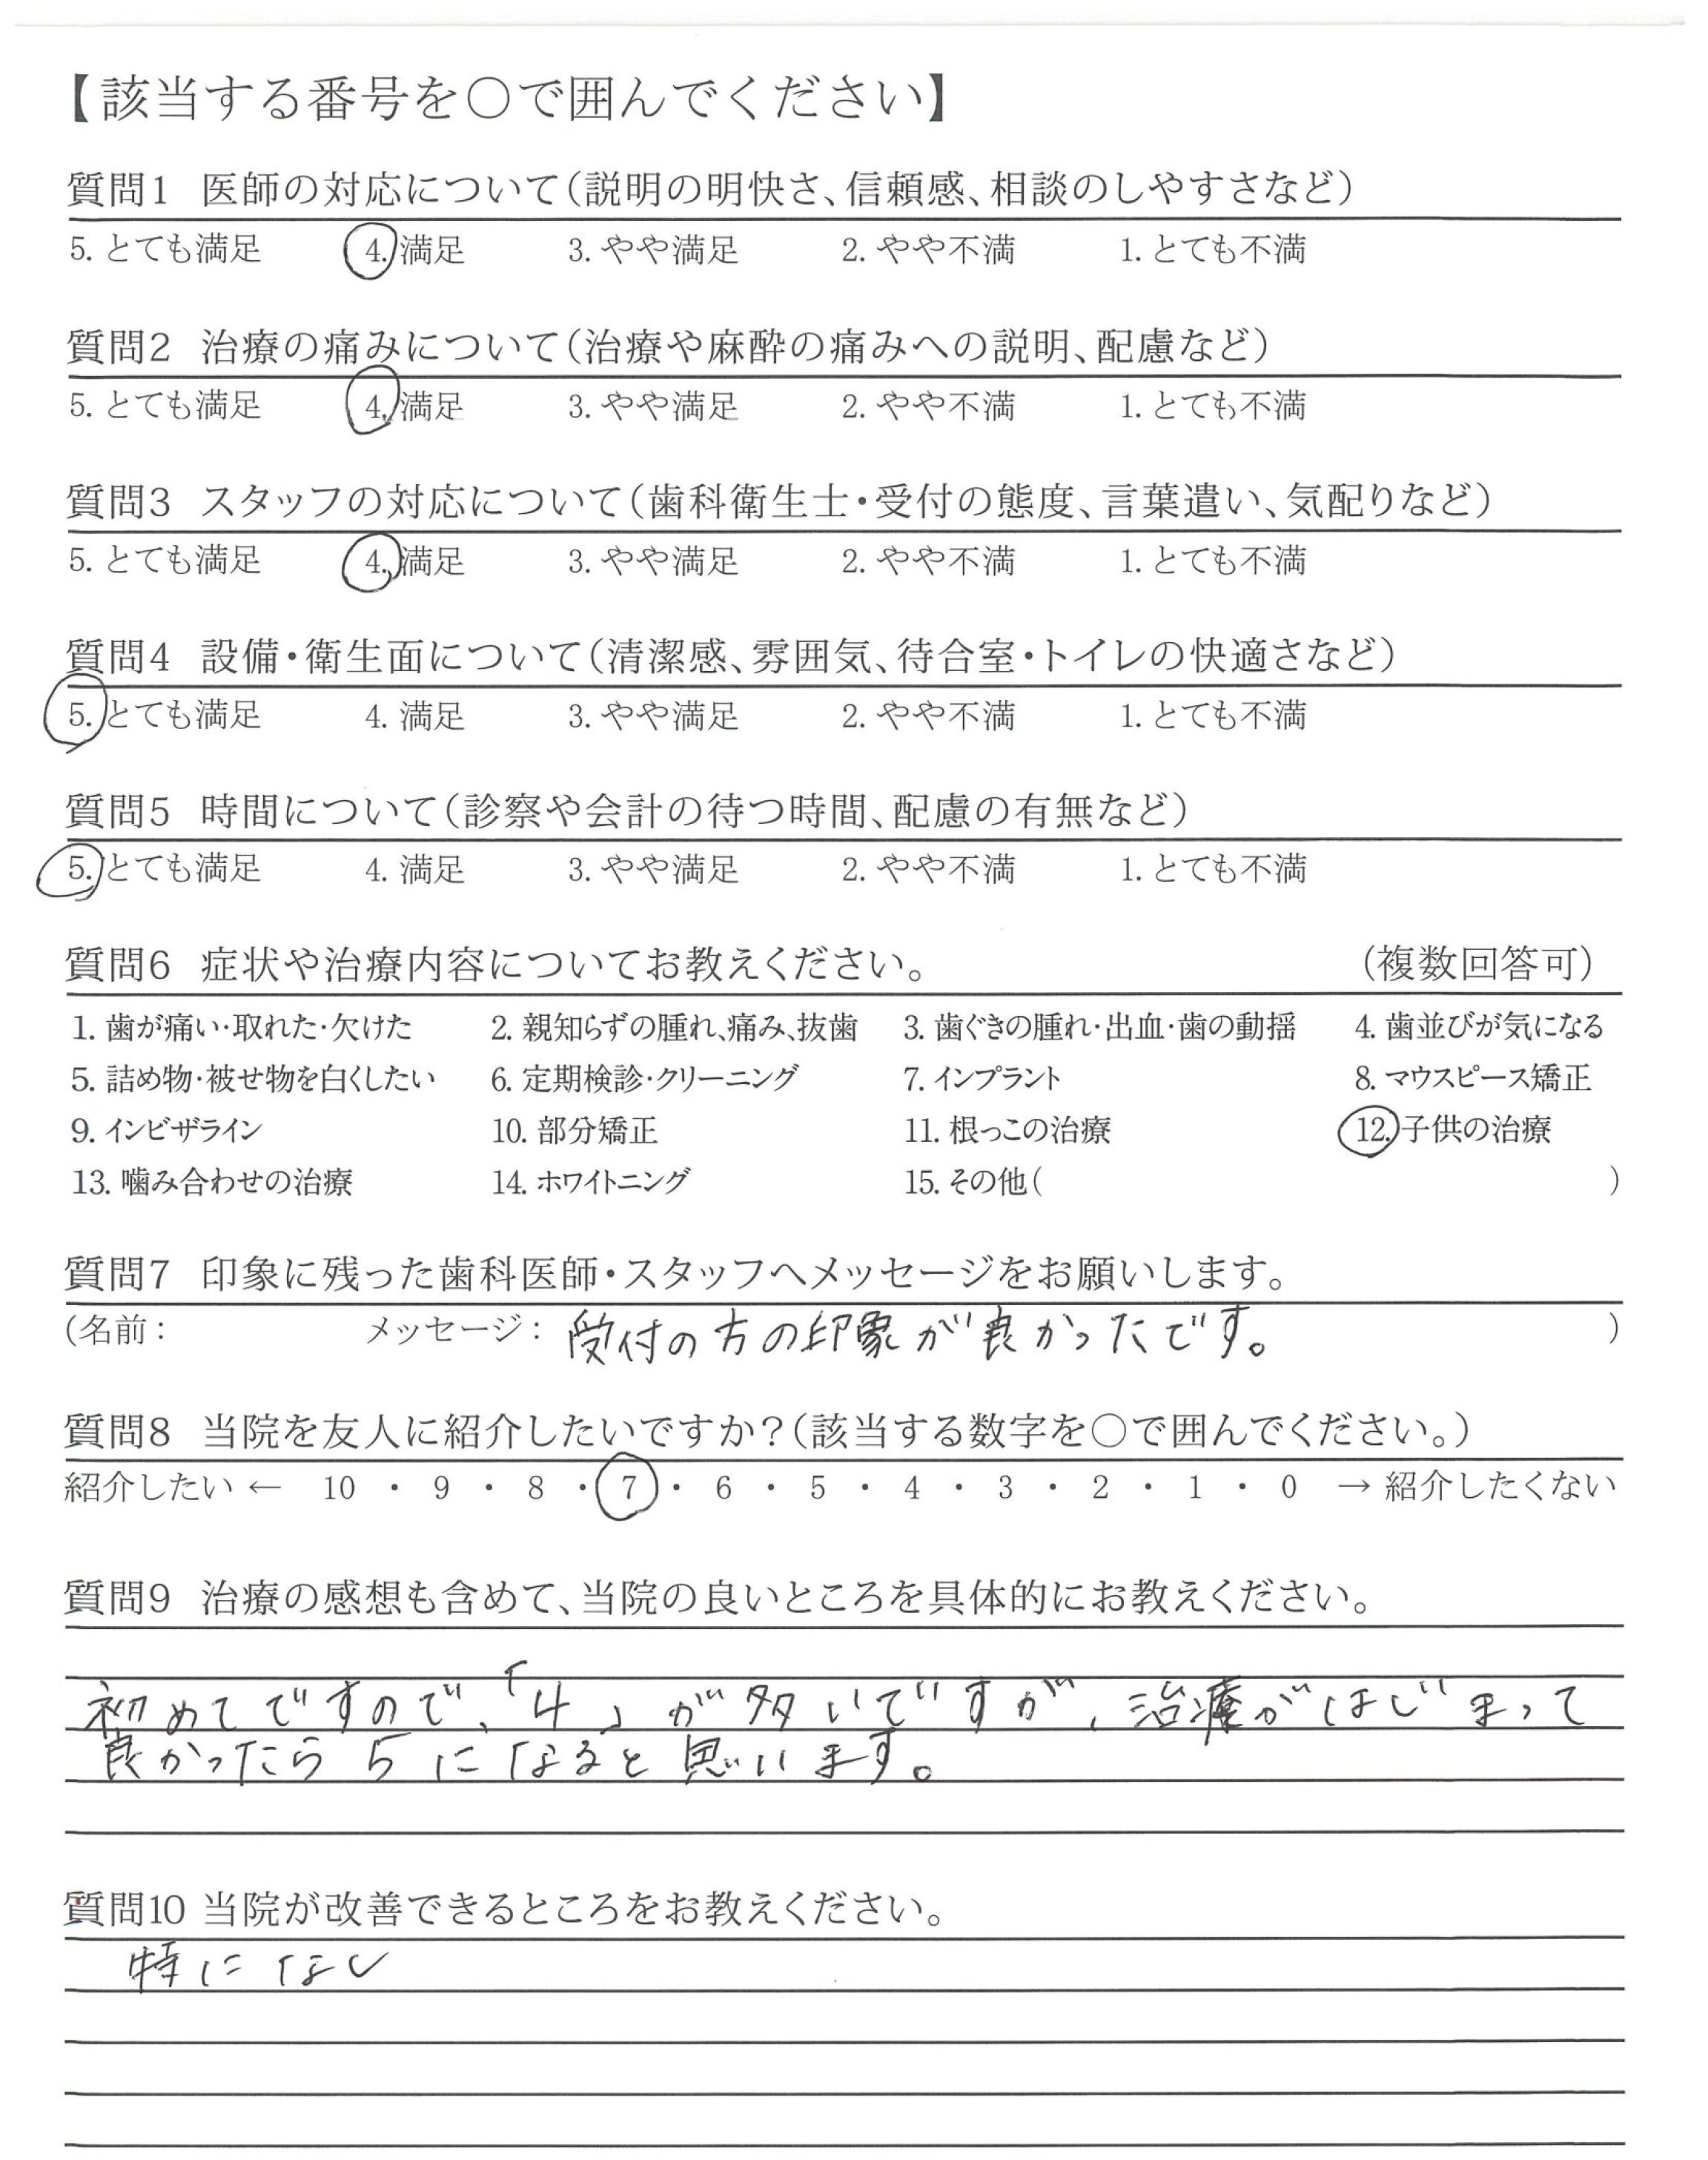 【該当する番号を○で囲んでください】
質問1 医師の対応について(説明の明快さ、信頼感、相談のしやすさなど)
5. とても満足 4. 満足 3. やや満足 2. やや不満 1. とても不満
質問2 治療の痛みについて(治療や麻酔の痛みへの説明、配慮など)
5. とても満足 4. 満足 3. やや満足 2. やや不満 1. とても不満
質問3 スタッフの対応について(歯科衛生士・受付の態度、言葉遣い、気配りなど)
5. とても満足 4. 満足 3. やや満足 2. やや不満 1. とても不満
質問4 設備・衛生面について(清潔感、雰囲気、待合室・トイレの快適さなど)
5. とても満足 4. 満足 3. やや満足 2. やや不満 1. とても不満
質問5 時間について(診察や会計の待つ時間、配慮の有無など)
5. とても満足 4. 満足 3. やや満足 2. やや不満 1. とても不満
質問6 症状や治療内容についてお教えください。 (複数回答可)
1. 歯が痛い・取れた・欠けた 2. 親知らずの腫れ、痛み、抜歯 3. 歯ぐきの腫れ・出血・歯の動揺 4. 歯並びが気になる
5. 詰め物・被せ物を白くしたい 6. 定期検診・クリーニング 7. インプラント 8. マウスピース矯正
9. インビザライン 10. 部分矯正 11. 根っこの治療 12. 子供の治療
13. 噛み合わせの治療 14. ホワイトニング 15. その他( )
質問7 印象に残った歯科医師・スタッフへメッセージをお願いします。
(名前: メッセージ: 受付の方の印象が良かったです。 )
質問8 当院を友人に紹介したいですか?(該当する数字を○で囲んでください。)
紹介したい ← 10 ・ 9 ・ 8 ・ 7 ・ 6 ・ 5 ・ 4 ・ 3 ・ 2 ・ 1 ・ 0 → 紹介したくない
質問9 治療の感想も含めて、当院の良いところを具体的にお教えください。
初めてですので、「4」が多いですが、治療がはじまって
良かったら5になると思います。
質問10 当院が改善できるところをお教えください。
特になし